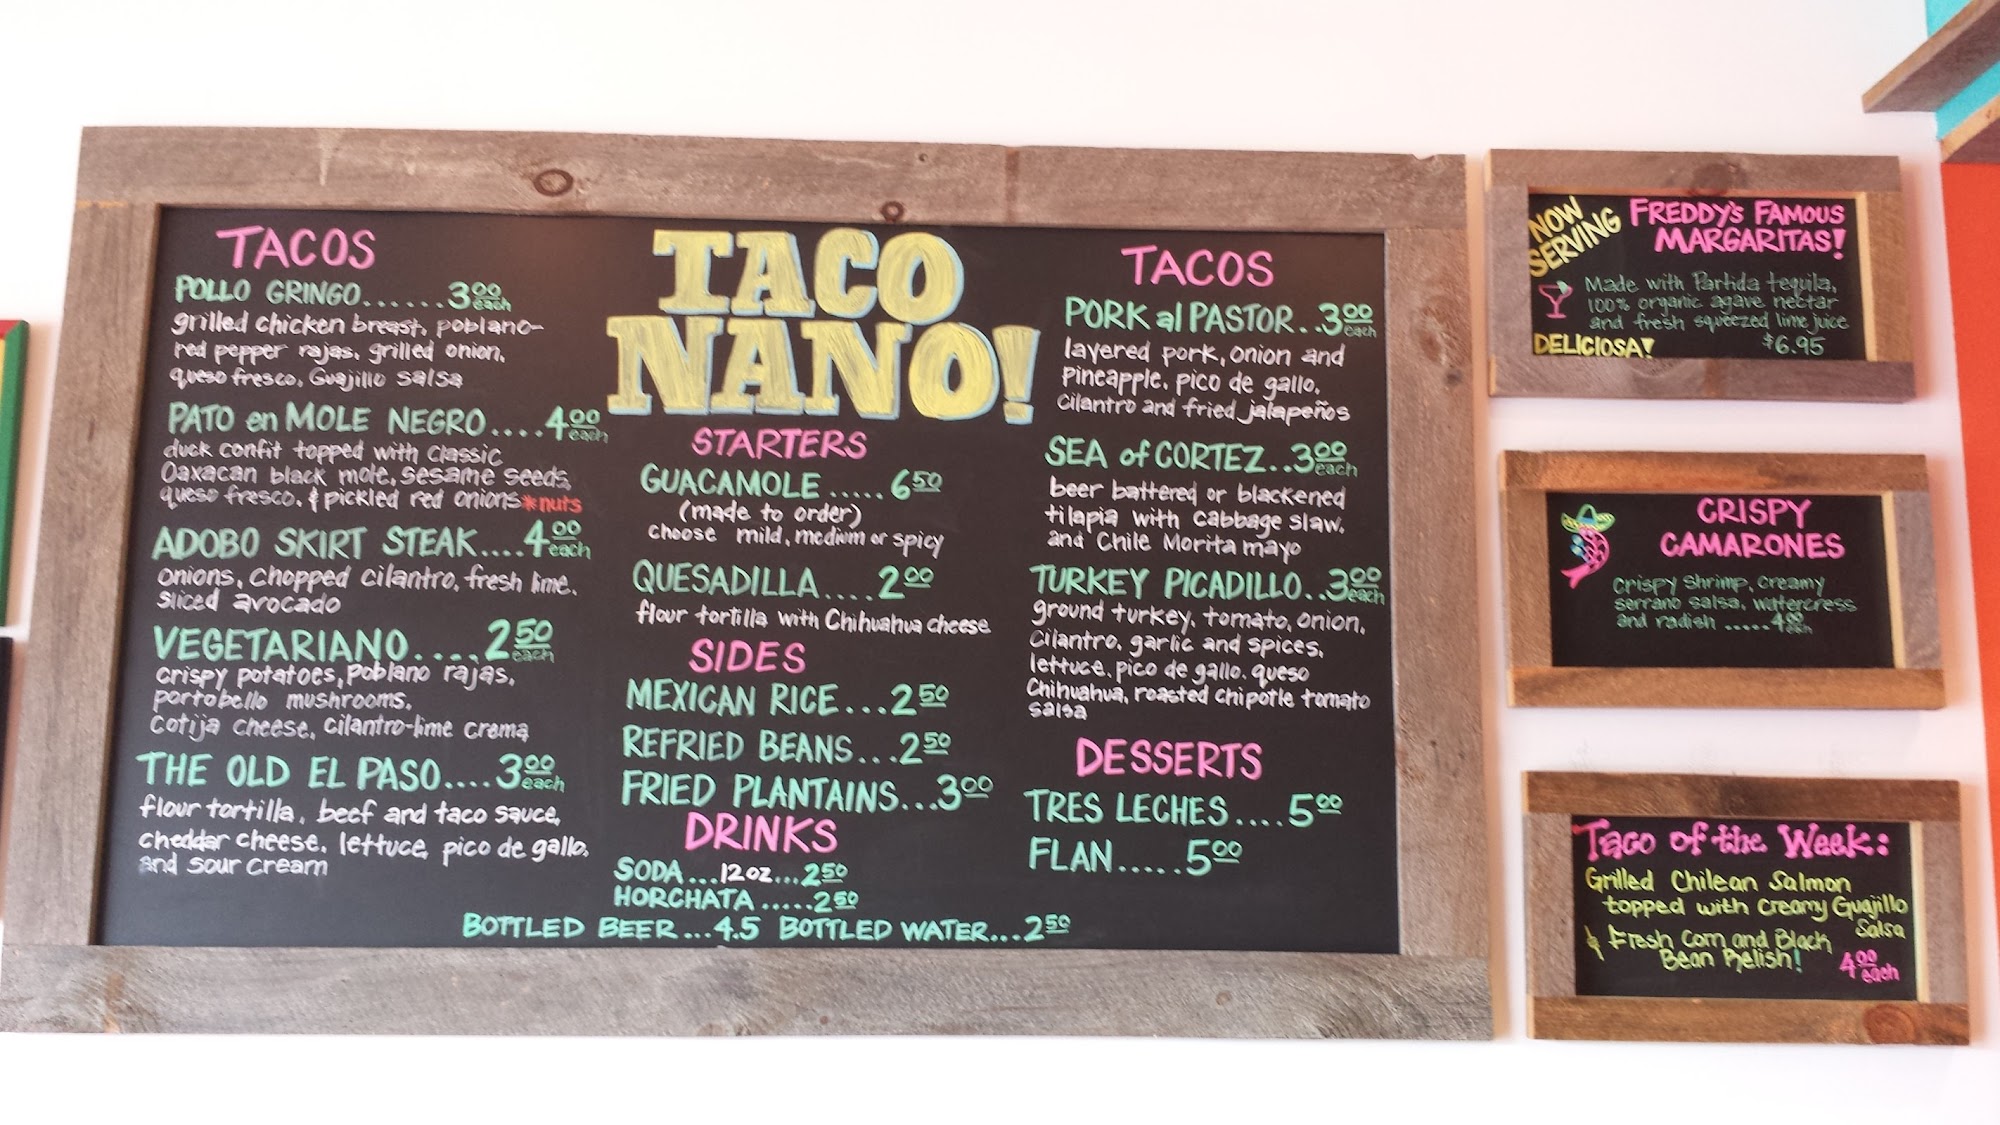 TACOS
POLLO GRINGO......3.00 each
grilled chicken breast, poblano-
red pepper rajas, grilled onion,
queso fresco, Guajillo salsa
PATO en MOLE NEGRO....4.00 each
duck confit topped with classic
Oaxacan black mole, sesame seeds,
queso fresco, & pickled red onions *nuts
ADOBO SKIRT STEAK....4.00 each
onions, chopped cilantro, fresh lime,
sliced avocado
VEGETARIANO....2.50 each
crispy potatoes, Poblano rajas,
portobello mushrooms,
Cotija cheese, cilantro-lime crema
THE OLD EL PASO....3.00 each
flour tortilla, beef and taco sauce,
cheddar cheese, lettuce, pico de gallo,
and sour cream
TACO
NANO!
STARTERS
GUACAMOLE.....6.50
(made to order)
choose mild, medium or spicy
QUESADILLA....2.00
flour tortilla with Chihuahua cheese
SIDES
MEXICAN RICE...2.50
REFRIED BEANS...2.50
FRIED PLANTAINS...3.00
DRINKS
SODA...12oz...2.50
HORCHATA.....2.50
BOTTLED BEER...4.5 BOTTLED WATER...2.50
TACOS
PORK al PASTOR..3.00 each
layered pork, onion and
pineapple, pico de gallo,
cilantro and fried jalapeños
SEA of CORTEZ..3.00 each
beer battered or blackened
tilapia with cabbage slaw,
and Chile Morita mayo
TURKEY PICADILLO..3.00 each
ground turkey, tomato, onion,
cilantro, garlic and spices,
lettuce, pico de gallo, queso
Chihuahua, roasted chipotle tomato
salsa
DESSERTS
TRES LECHES....5.00
FLAN.....5.00
NOW
SERVING
FREDDY'S FAMOUS
MARGARITAS!
Made with Partida tequila,
100% organic agave nectar
and fresh squeezed lime juice
DELICIOSA! $6.95
CRISPY
CAMARONES
Crispy shrimp, creamy
serrano salsa, watercress
and radish.....4.00 each
Taco of the Week:
Grilled Chilean Salmon
topped with creamy Guajillo
Salsa
& Fresh Corn and Black
Bean Relish! 4.00 each